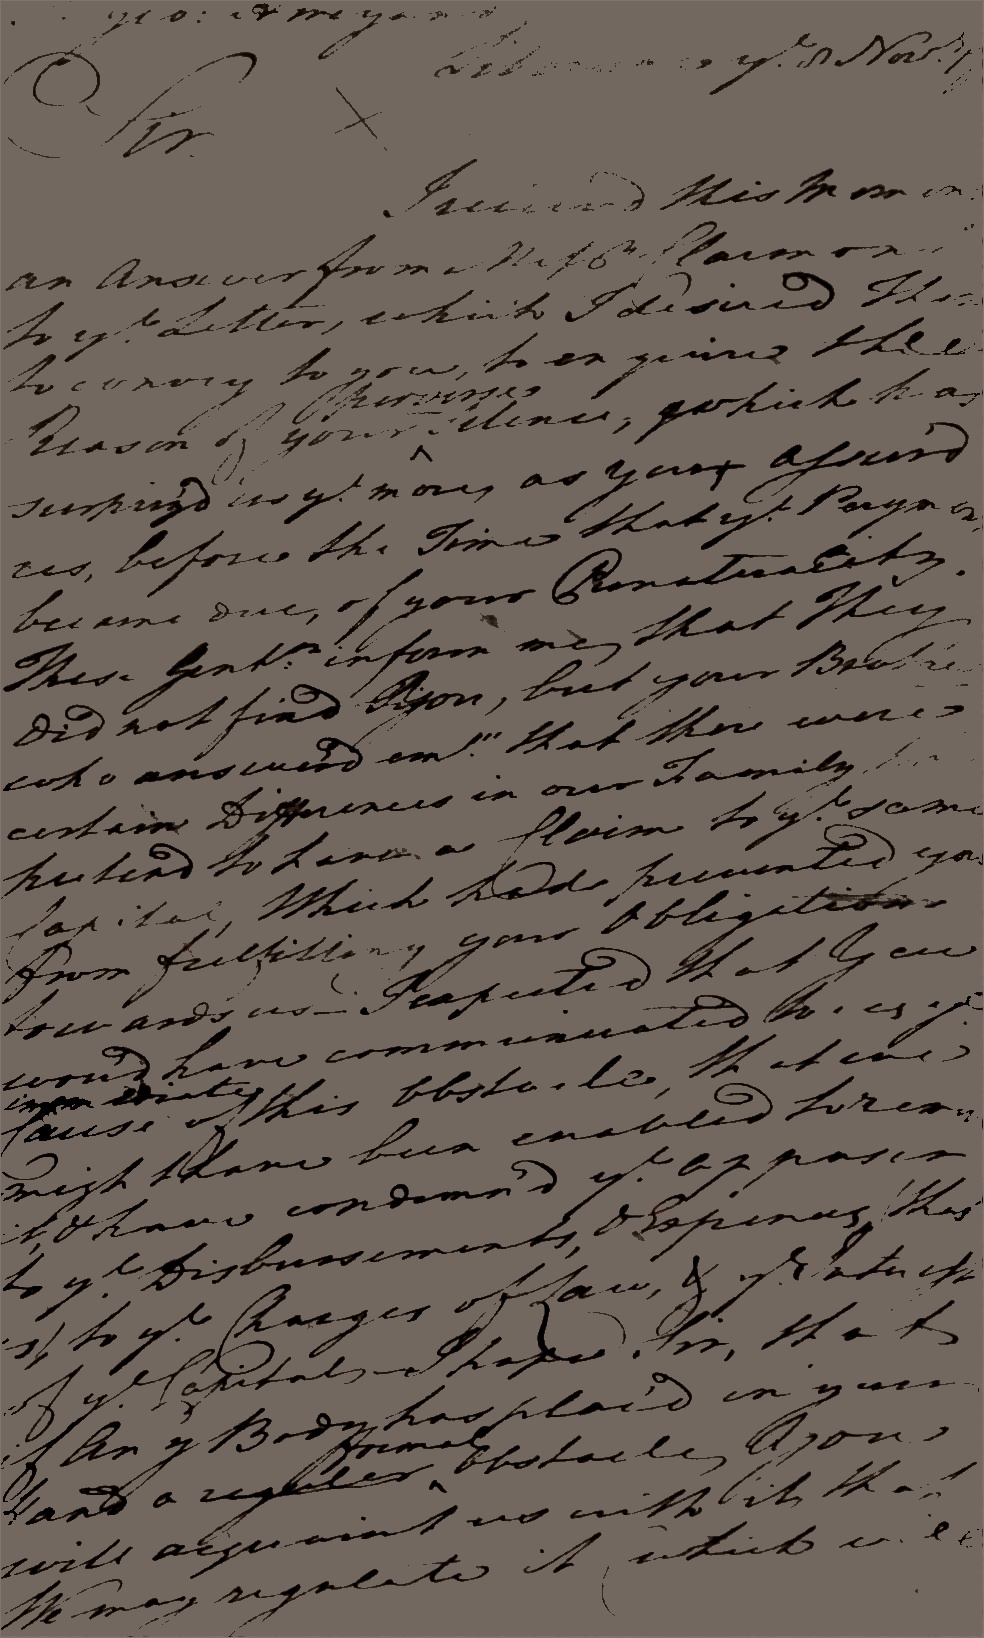 ye. 8 Nov.
Sir.
I receiv'd this Morn
an Answer from Claimon
to ye. Letter, which I desired
to convey to you, to enquire the
perverse
Reason of your Silence, which has
surpriz'd us ye. more, as you assur'd
us, before the Time that ye. Paym
became due, of your Punctuality.
These Gentn. inform me, that They
did not find you, but your Brothe
who answer'd em." that there were
certain Differences in our Family
pretend to have a Claim to ye. same
Capital, Which had prevented you
from fulfilling your Obligations
towards us— I expected that You
would have communicated to us ye.
immediate
Cause of this Obstacle, that we
might have been enabled to rem
it, & have condemn'd ye. opposer
to ye. Disbursements, & Expences, that
is, to ye. Charges of Law, & ye. Interest
of ye. Capital— I hope Sir, that
if Any Body has plac'd in your
formal
Hand a regular Obstacle, you
will acquaint us with it, that
We may regulate it which will